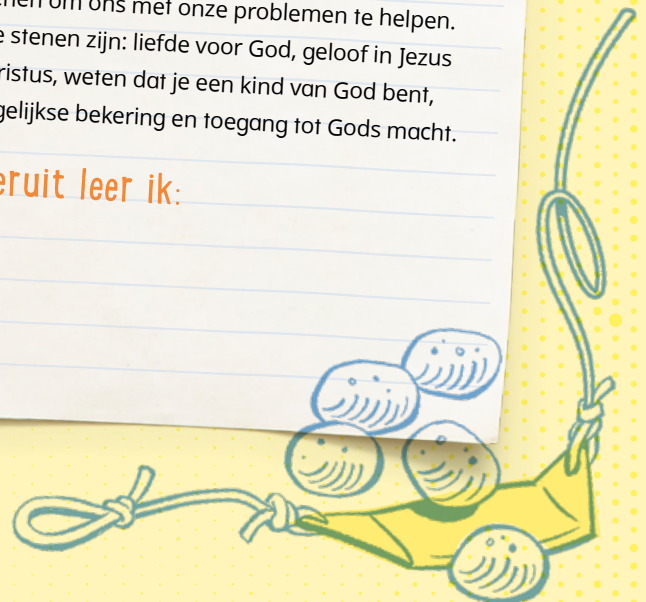 om ons met onze problemen te helpen.
stenen zijn: liefde voor God, geloof in Jezus
weten dat je een kind van God bent,
bekering en toegang tot Gods macht.
leer ik: